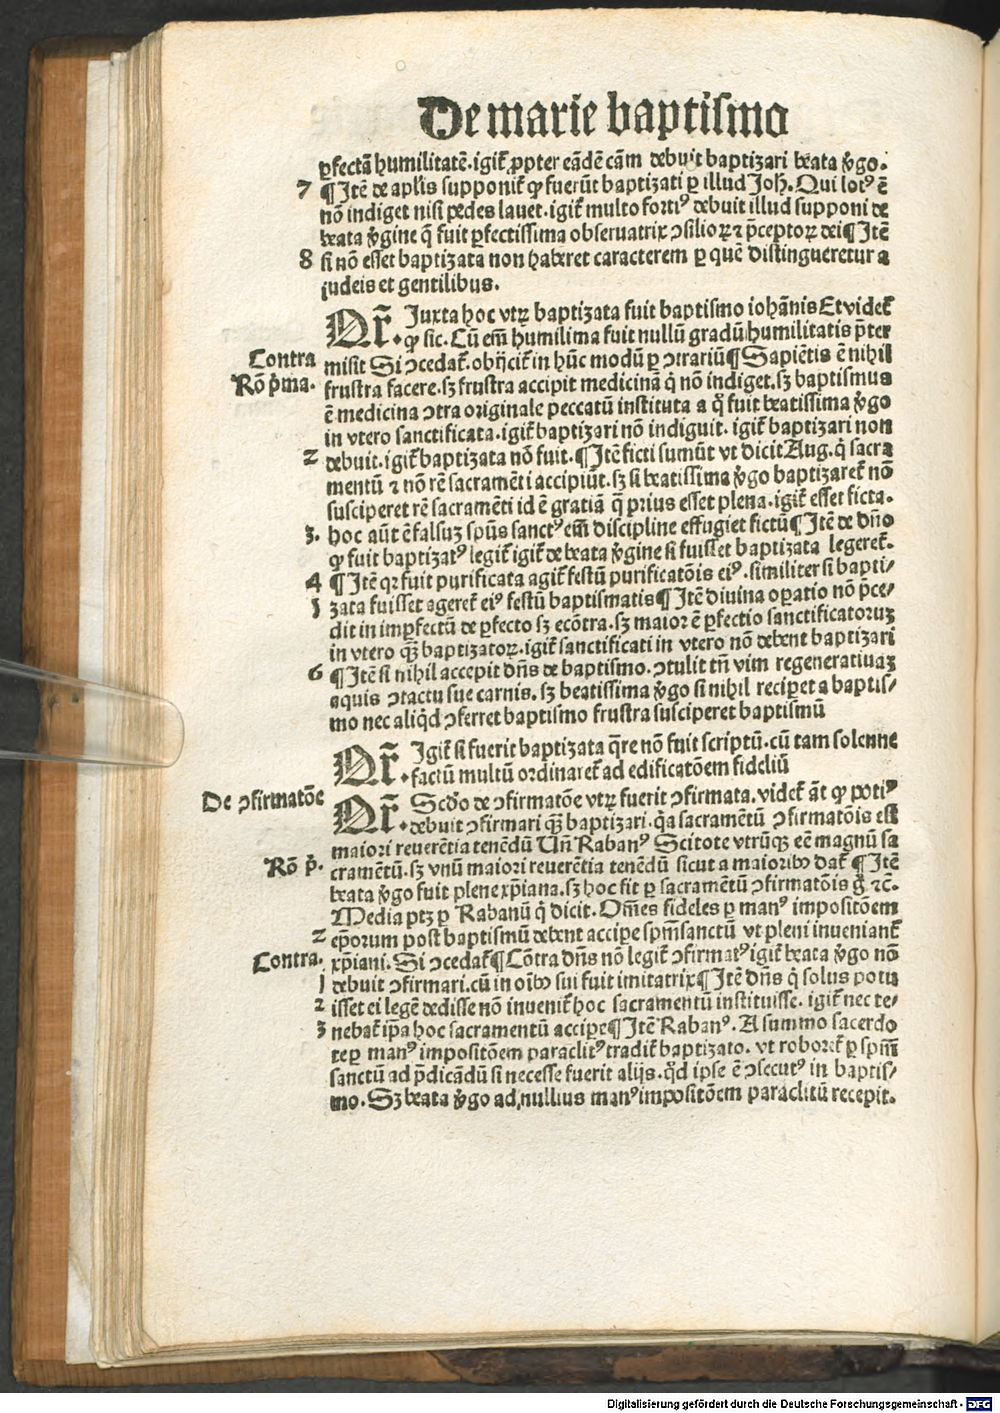 De marie baptismo
ꝑfectā humilitatē. igit̄ ꝓpter eādē cām debuit baptizari beata v̄go.
7 ¶ Itē de aplis supponit̄ ꝙ fuerūt baptizati ꝑ illud Joh. Qui lotꝰ ē
nō indiget nisi pedes lauet. igit̄ multo fortiꝰ debuit illud supponi de
beata v̄gine q̄ fuit ꝑfectissima obseruatrix ꝯsilioꝝ ⁊ p̄ceptoꝝ dei ¶ Itē
8 si nō esset baptizata non haberet caracterem ꝑ quē distingueretur a
judeis et gentilibus.
Qr̄. Juxta hoc vtꝝ baptizata fuit baptismo iohānis Et videt̄
ꝙ sic. Cū em̄ humilima fuit nullū gradū humilitatis p̄ter
Contra misit Si ꝯcedat̄. obijcit̄ in hūc modū ꝑ ꝯtrariū ¶ Sapiētis ē nihil
Rō p̄ma. frustra facere. sꝫ frustra accipit medicinā q̇ nō indiget. sꝫ baptismus
ē medicina ꝯtra originale peccatū instituta a q̊ fuit beatissima v̄go
in vtero sanctificata. igit̄ baptizari nō indiguit. igit̄ baptizari non
2 debuit. igit̄ baptizata nō fuit. ¶ Itē ficti sumūt vt dicit Aug. q̇ sacra
mentū ⁊ nō rē sacramēti accipiūt. sꝫ si beatissima v̄go baptizaret̄ nō
susciperet rē sacramēti id ē gratiā q̄ prius esset plena. igit̄ esset ficta.
3. hoc aūt ē falsuꝫ spūs sanctꝰ em̄ discipline effugiet fictū ¶ Itē de dn̄o
ꝙ fuit baptizatꝰ legit̄ igit̄ de beata v̄gine si fuisset baptizata legeret̄.
4 ¶ Itē qꝛ fuit purificata agit̄ festū purificatōis eiꝰ. similiter si bapti⸗
1 zata fuisset ageret̄ eiꝰ festū baptismatis ¶ Itē diuina oꝑatio nō p̄ce⸗
dit in imꝑfectū de ꝑfecto sꝫ ecōtra. sꝫ maior ē ꝑfectio sanctificatoruꝫ
in vtero qꝫ̄ baptizatoꝝ. igit̄ sanctificati in vtero nō debent baptizari
6 ¶ Itē si nihil accepit dn̄s de baptismo. ꝯtulit tn̄ vim regeneratiuaꝫ
aquis ꝯtactu sue carnis. sꝫ beatissima v̄go si nihil reciꝑet a baptis⸗
mo nec aliq̇d ꝯferret baptismo frustra susciperet baptismū
Qr̄. Igit̄ si fuerit baptizata q̄re nō fuit scriptū. cū tam solenne
factū multū ordinaret̄ ad edificatōem fideliū
De ꝯfirmatōe Qr̄. Scdo de ꝯfirmatōe vtꝝ fuerit ꝯfirmata. videt̄ āt ꝙ potiꝰ
debuit ꝯfirmari qꝫ̄ baptizari. q̇a sacramētū ꝯfirmatōis est
maiori reuerētia tenēdū Un̄ Rabanꝰ Scitote vtrūqꝫ eē magnū sa
Rō p̄. cramētū. sꝫ vnū maiori reuerētia tenēdū sicut a maioribꝰ dat̄ ¶ Itē
beata v̄go fuit plene xp̄iana. sꝫ hoc fit ꝑ sacramētū ꝯfirmatōis g̊ ⁊c̄.
Media ptꝫ ꝑ Rabanū q̇ dicit. Om̄es fideles ꝑ manꝰ impositōem
2 ep̄orum post baptismū debent accipe spm̄sanctū vt pleni inueniant̄
Contra. xp̄iani. Si ꝯcedat̄ ¶ Cōtra dn̄s nō legit̄ ꝯfirmatꝰ igit̄ beata v̄go nō
1 debuit ꝯfirmari. cū in oībꝰ sui fuit imitatrix ¶ Itē dn̄s q̇ solus potu
2 isset ei legē dedisse nō inuenit̄ hoc sacramentū instituisse. igit̄ nec te⸗
3 nebat̄ ip̄a hoc sacramentū accipe ¶ Itē Rabanꝰ. A summo sacerdo
te ꝑ manꝰ impositōem paraclitꝰ tradit̄ baptizato. vt roboret̄ ꝑ spm̄
sanctū ad p̄dicādū si necesse fuerit alijs. qd̊ ipse ē ꝯsecutꝰ in baptis⸗
mo. Sꝫ beata v̄go ad nullius manꝰ impositōem paraclitū recepit.
Digitalisierung gefördert durch die Deutsche Forschungsgemeinschaft - DFG